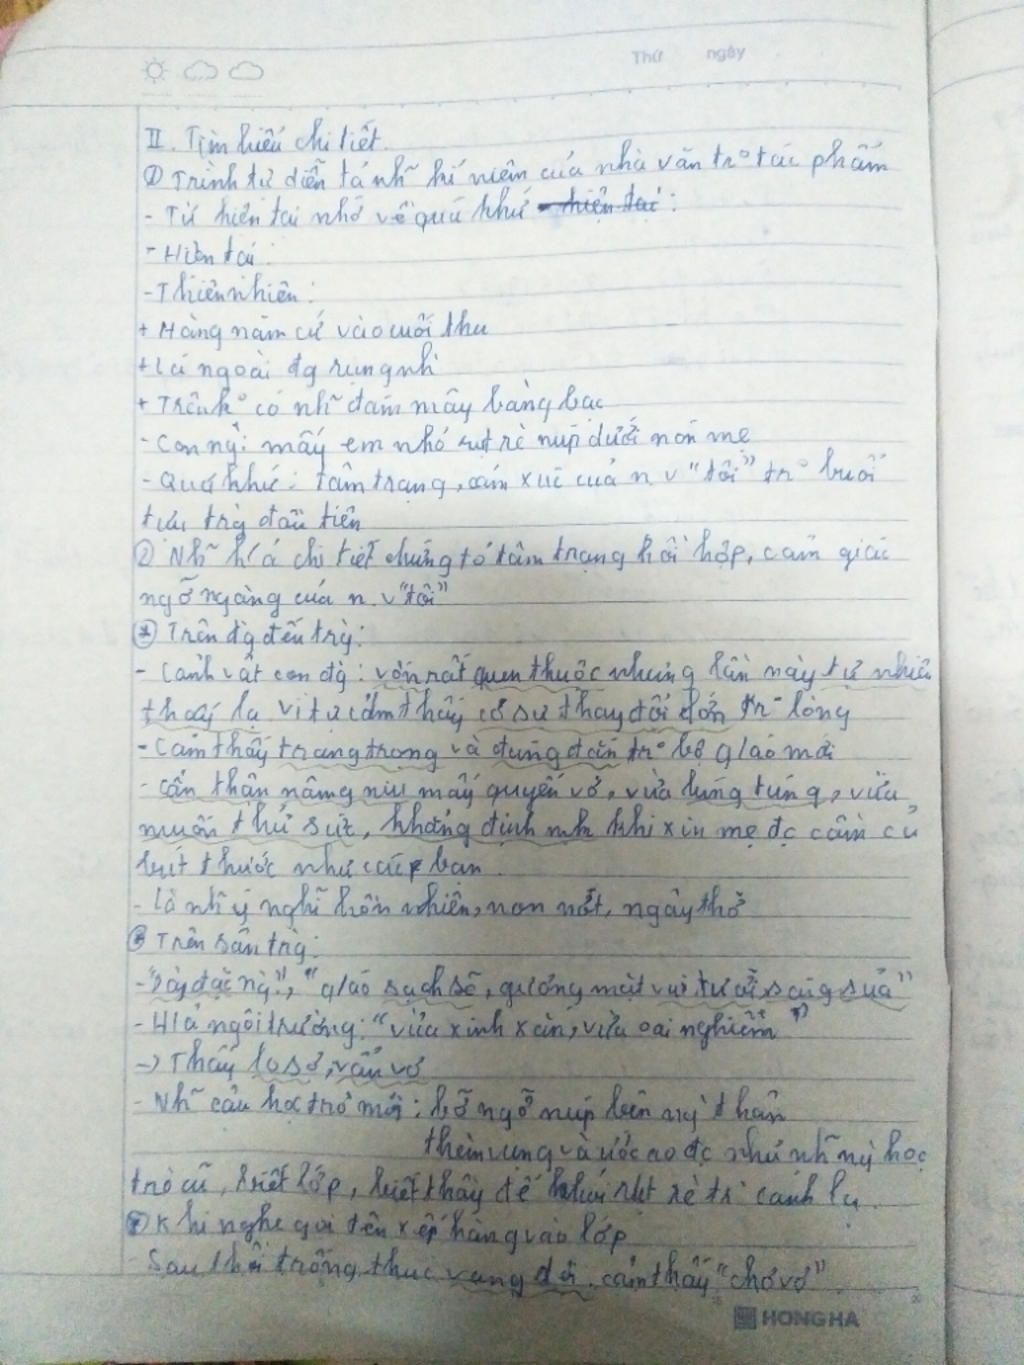 Thứ ngày
II. Tìm hiểu chi tiết.
① Trình tự diễn tả nh~ kỉ niệm của nhà văn tr° tác phẩm
- Từ hiện tại nhớ về quá khứ - hiện tại:
- Hiện tại:
- Thiên nhiên:
+ Hàng năm cứ vào cuối thu
+ Lá ngoài đg rụng nh`
+ Trên k° có nh~ đám mây bàng bạc
- Con ng`: mấy em nhỏ rụt rè núp dưới nón mẹ
- Quá khứ: Tâm trạng, cảm xúc của n.v "tôi" tr° buổi
tựu trg đầu tiên
② Nh~ h/á chi tiết chứng tỏ tâm trạng hồi hộp, cảm giác
ngỡ ngàng của n.v "tôi"
* Trên đg đến trg:
- Cảnh vật con đg: vốn rất quen thuộc nhưng lần này tự nhiên
thấy lạ vì tự cảm thấy có sự thay đổi lớn tr° lòng
- Cảm thấy trang trọng và đứng đắn tr° bộ q/áo mới
- Cẩn thận nâng niu mấy quyển vở, vừa lúng túng, vừa
muốn thử sức, khẳng định mk khi xin mẹ đc cầm cả
bút thước như các bạn.
- Là nh~ ý nghĩ hồn nhiên, non nớt, ngây thơ
* Trên sân trg:
- "Dày đặc ng`", "q/áo sạch sẽ, gương mặt vui tươi sáng sủa"
- H/ả ngôi trường: "vừa xinh xắn, vừa oai nghiêm"
-> Thấy lo sợ, vẩn vơ
- Nh~ cậu học trò mới: bỡ ngỡ núp bên ng` thân
thèm vụng và ước ao đc như nh~ ng` học
trò cũ, biết lớp, biết thầy để khỏi rụt rè tr° cảnh lạ.
* Khi nghe gọi tên xếp hàng vào lớp
- Sau hồi trống thúc vang dội cảm thấy "chơ vơ".
HONG HA